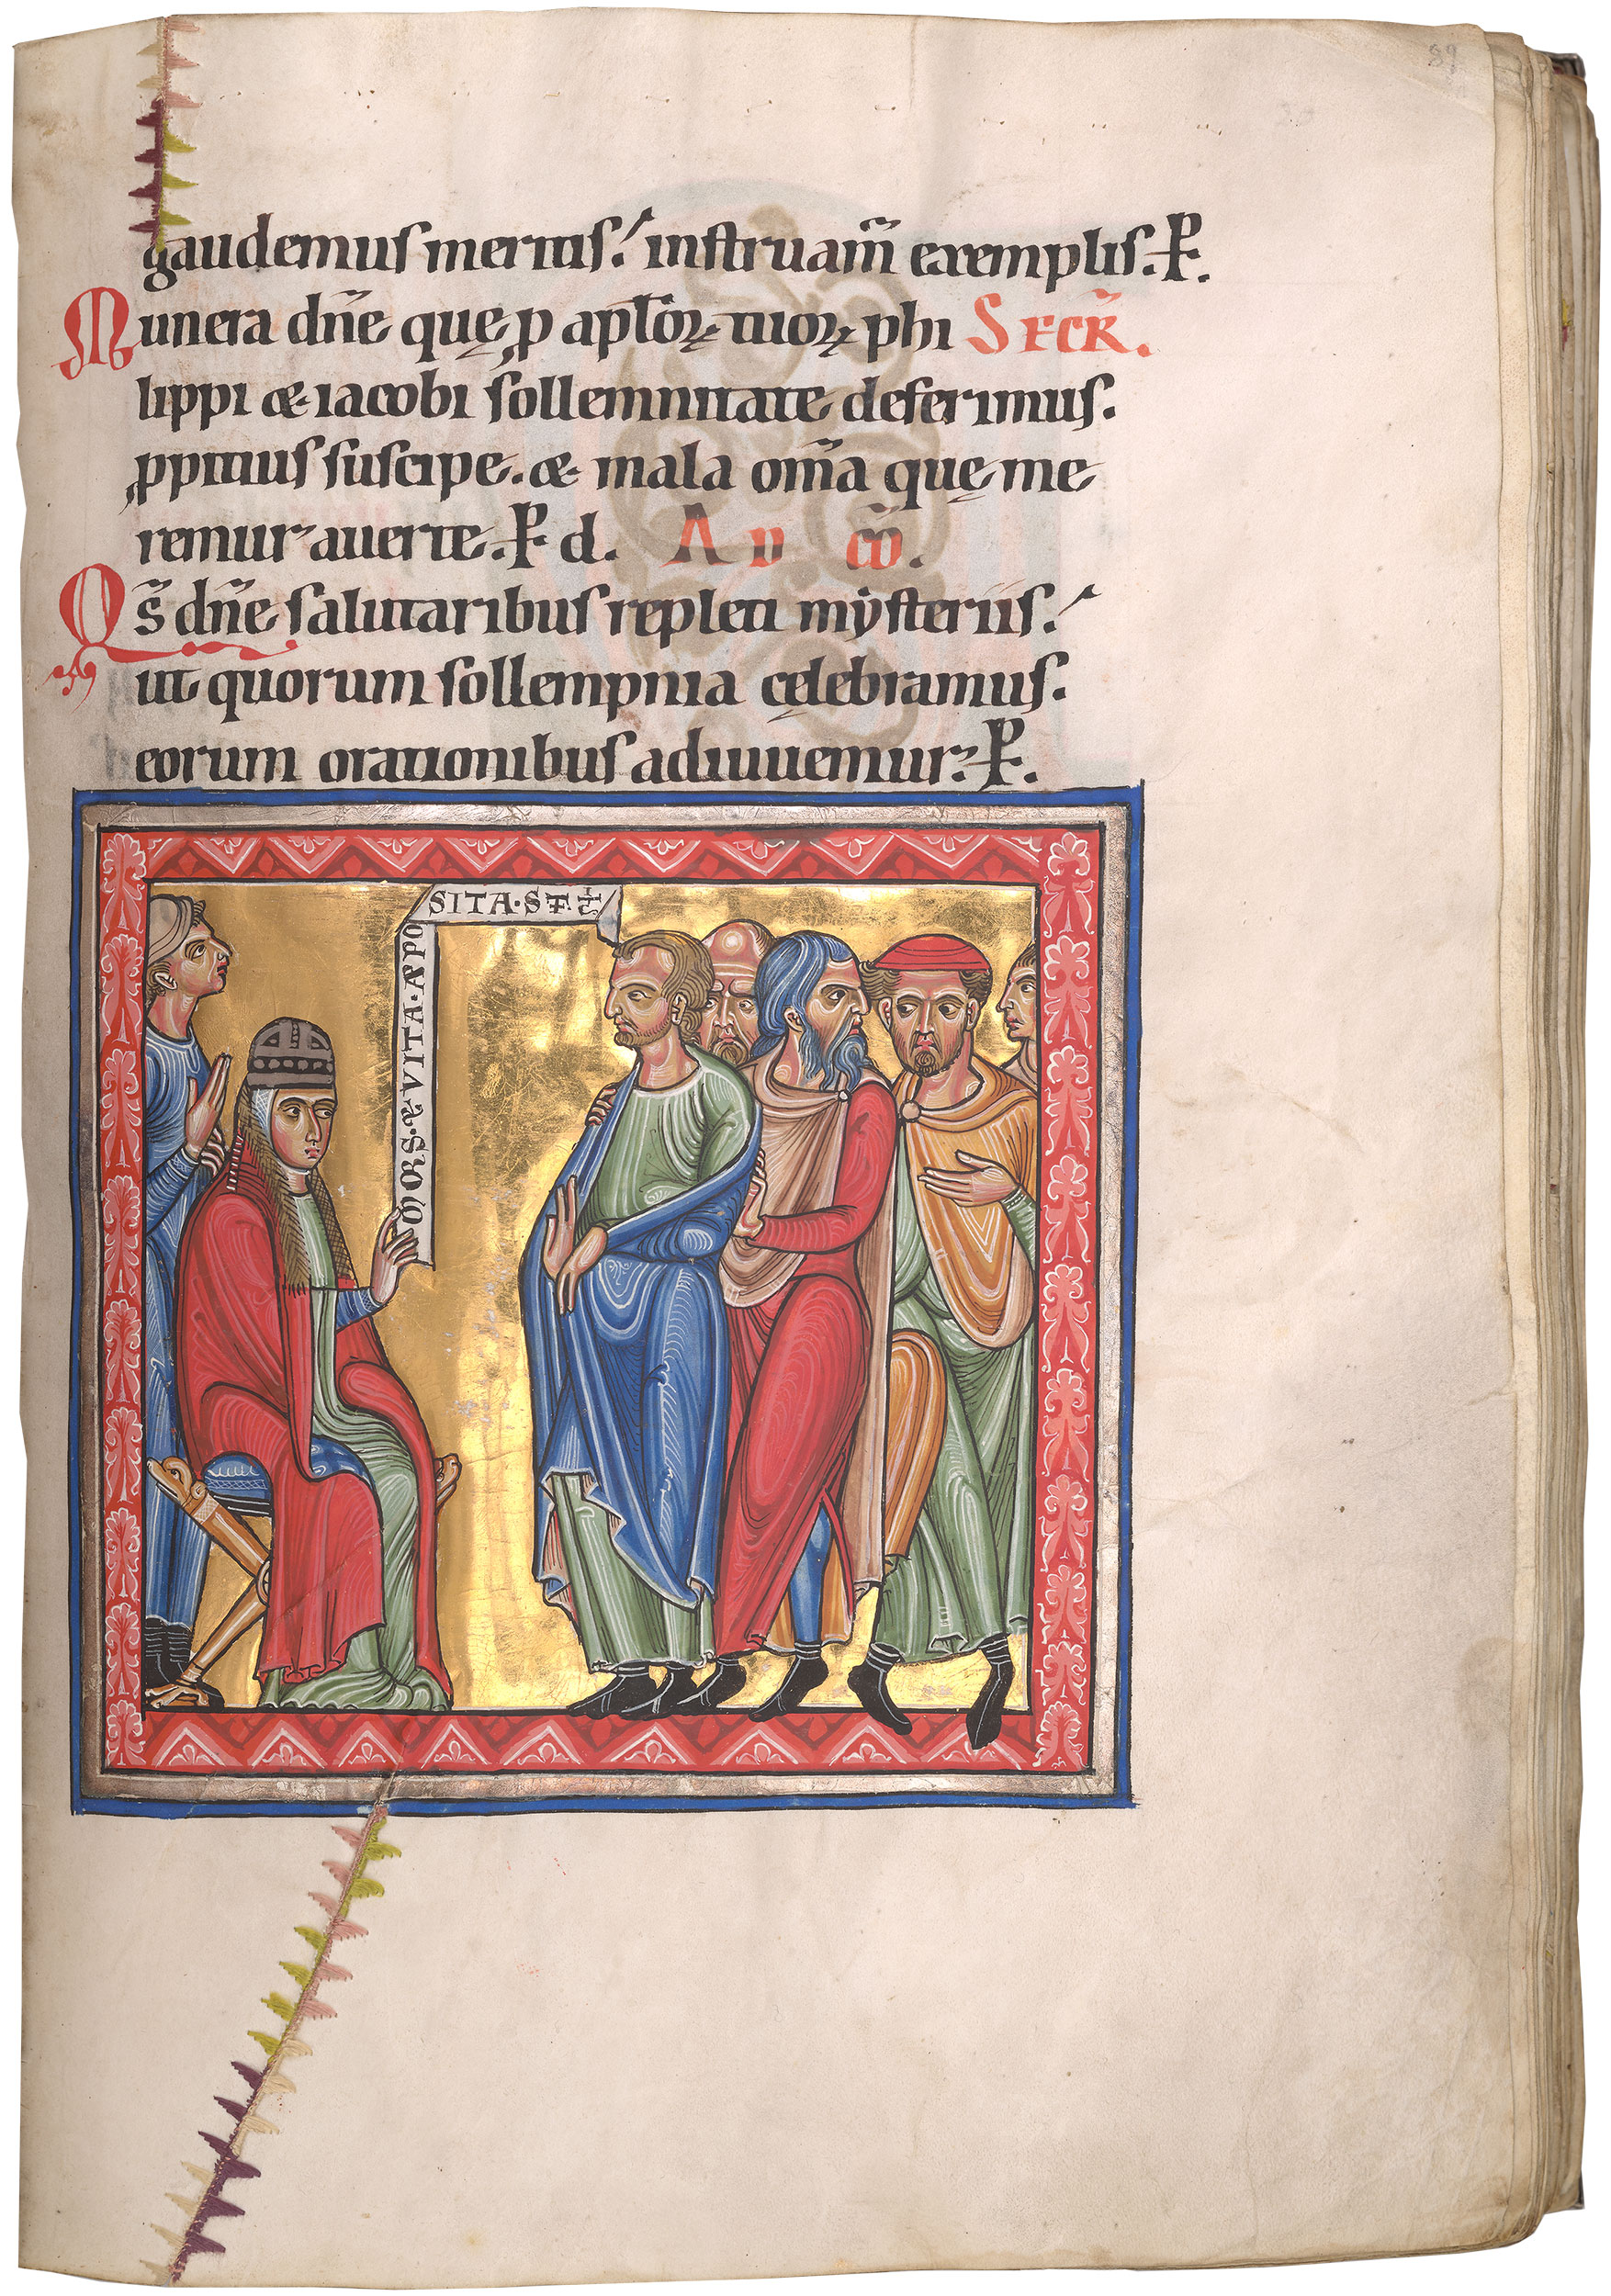 89
gaudemus meritis. instruam̃ exemplis. P̶.
Munera dñe quę ꝑ aptõꝝ tuoꝝ phi SECR̃.
lippi & iacobi sollemnitate deferimus.
ꝓpitius suscipe. & mala om̃a quę me
remur auerte. P̶ d. AD CÕ.
Qs̃ dñe salutaribus repleti mẏsteriis.
ut quorum sollempnia cęlebramus.
eorum orationibus adiuuemur. P̶.
MORS · & VITA · APPO
SITA · ST̄